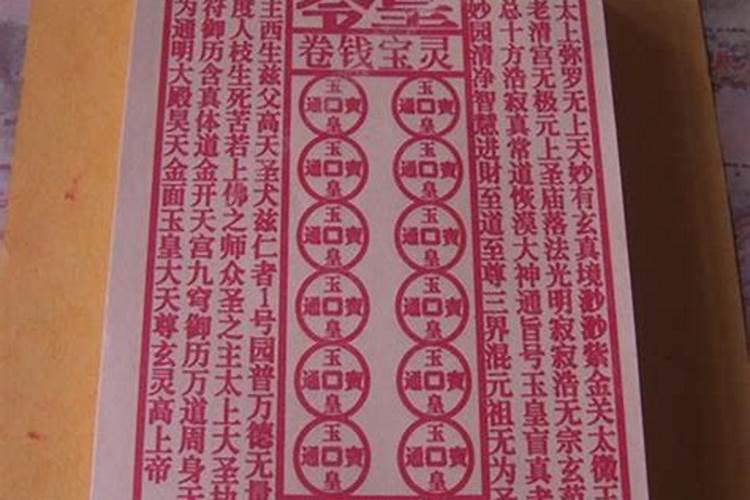 太上弥罗无上天妙有玄真境渺渺紫金关太微玉
老清宫无极元上圣庙落法光明寂寂浩无宗玄
总十方浩寂真常道恢漠大神通旨号玉皇盲真
妙园清净智慧进財至道至尊三界混元祖无为
皇令
灵宝钱卷
玉皇通寶
玉皇通寶
玉皇通寶
玉皇通寶
玉皇通寶
玉皇通寶
玉皇通寶
玉皇通寶
玉皇通寶
玉皇通寶
玉皇通寶
玉皇通寶
主西生兹父高天圣犬兹仁者1号园普万德无量
度人枝生死苦若上佛之师众圣之主太上大圣
符御历含真体道金开天宫九穹御历万道周身无
为通明大殿昊天金面玉皇大天尊玄灵高上帝